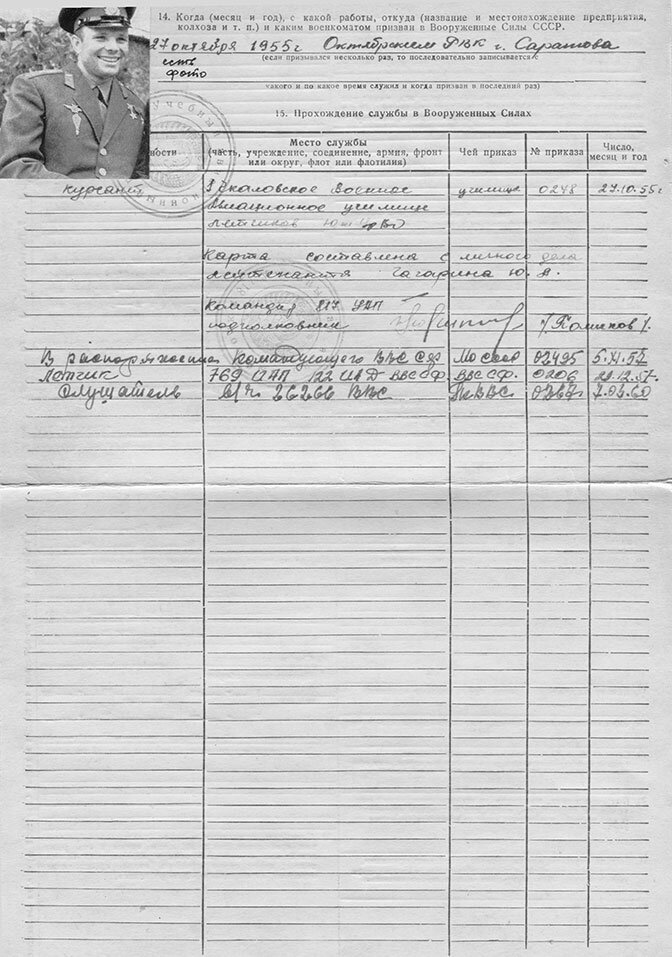 14. Когда (месяц и год), с какой работы, откуда (название и местонахождение предприятия,
колхоза и т. п.) и каким военкоматом призван в Вооруженные Силы СССР.
27 октября 1955г Октябрьским РВК г. Саратова
есть
фото
(если призывался несколько раз, то последовательно записывается с
какого и по какое время служил и когда призван в последний раз)
15. Прохождение службы в Вооруженных Силах
ности
Место службы
(часть, учреждение, соединение, армия, фронт
или округ, флот или флотилия)
Чей приказ
№ приказа
Число,
месяц и год
курсант 1 Чкаловское Военное училище 0248 27.10.55г
Авиационное училище
летчиков
Карта составлена с личного дела
лейтенанта Гагарина Ю. А.
Командир 817 УАП
подполковник /Поликов/
В распоряжении Командующего ВВС СФ МО СССР 02495 5.XI.57
Летчик 769 ИАП 122 ИАД ВВС СФ. ВВС СФ. 0206 29.12.57г
Слушатель в/ч 26266 ВВС ГК ВВС 0267 7.03.60
Учебный